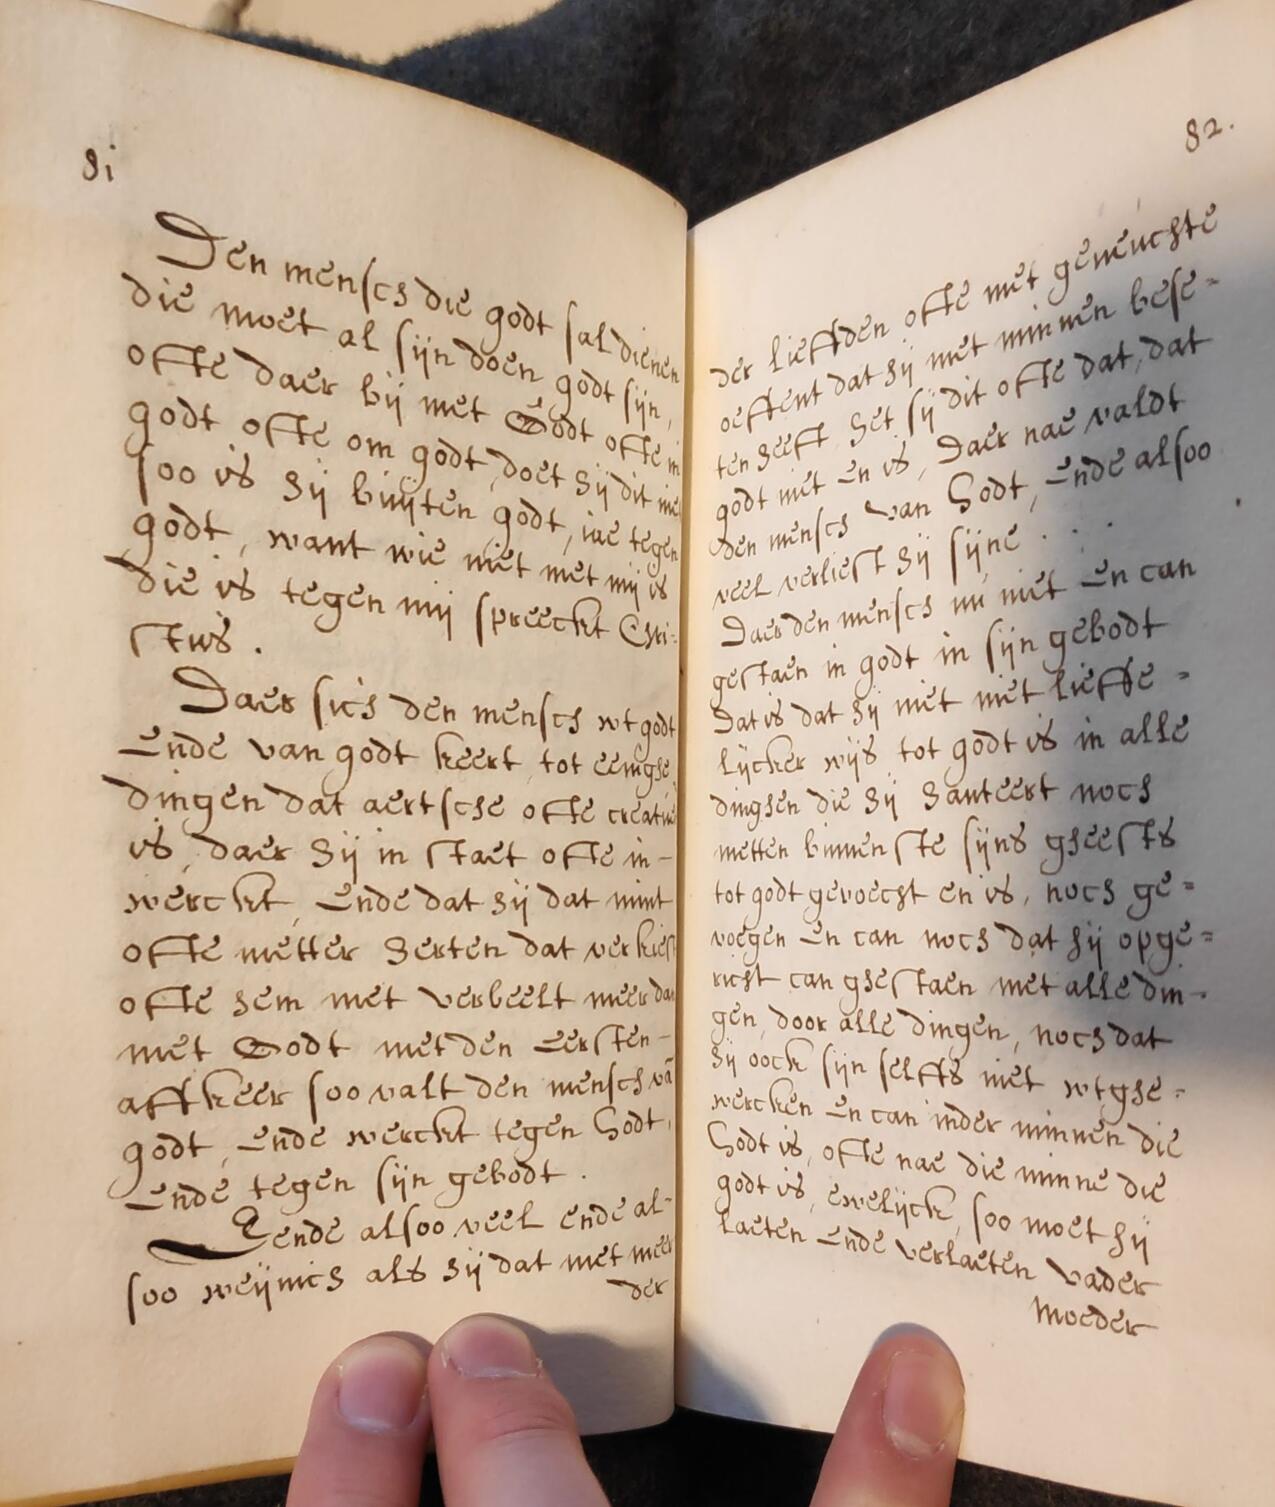 81
Den mensch die godt sal dienen
die moet al sijn doen godt sijn,
ofte daer bij met Godt ofte in
godt ofte om godt, doet hij dit niet
soo is hij buijten godt, iae tegen
godt, want wie niet met mij is
die is tegen mij spreeckt Chri:
stus.
Daer sich den mensch wt godt
Ende van godt keert tot eenighe
dingen dat aertsche ofte creature
is, daer hij in staet ofte in-
werckt, Ende dat hij dat mint
ofte metter herten dat verkiest
ofte hem met verbeelt meer dan
met Godt met den Eersten-
affkeer soo valt den mensch vã
godt, Ende werckt tegen Godt,
Ende tegen sijn gebodt.
Eende alsoo veel ende al-
soo weijnich als hij dat met meer
der
82.
der lieffden ofte met geneuchte
oeffent dat hij met minnen bese=
ten heeft het sij dit ofte dat, dat
godt niet en is, Daer nae valdt
den mensch van Godt, Ende alsoo
veel verliest hij sijne . . .
Daer den mensch nu niet En can
gestaen in godt in sijn gebodt
Dat is dat hij niet met lieffe=
lijcker wijs tot godt is in alle
dinghen die hij hanteert noch
metten binnenste sijns gheests
tot godt gevoecht en is, noch ge=
voegen En can noch dat hij opge=
richt can ghestaen met alle din-
gen, door alle dingen, noch dat
hij oock sijn selffs niet wtghe-
wercken En can inder minnen die
Godt is, ofte nae die minne die
godt is, ewelijck, soo moet hij
laeten Ende verlaeten vader
Moeder